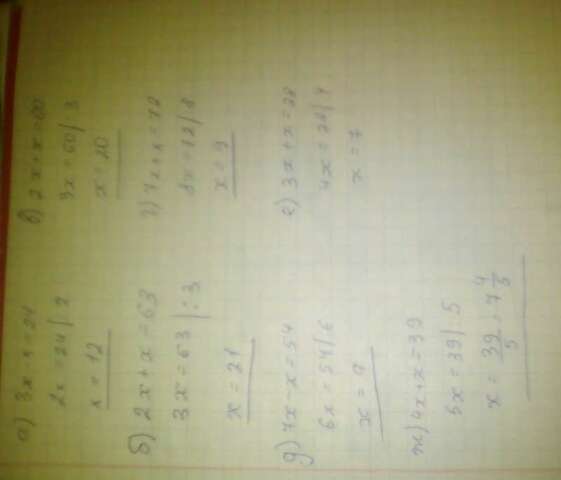 а) 3x - x = 24
2x = 24 | 2
x = 12
б) 2x + x = 63
3x = 63 | : 3
x = 21
в) 2x + x = 60
3x = 60 | 3
x = 20
г) 7x + x = 72
8x = 72 | 8
x = 9
д) 7x - x = 54
6x = 54 | 6
x = 9
е) 3x + x = 28
4x = 28 | 4
x = 7
ж) 4x + x = 39
5x = 39 | 5
x = 39/5 = 7 4/5